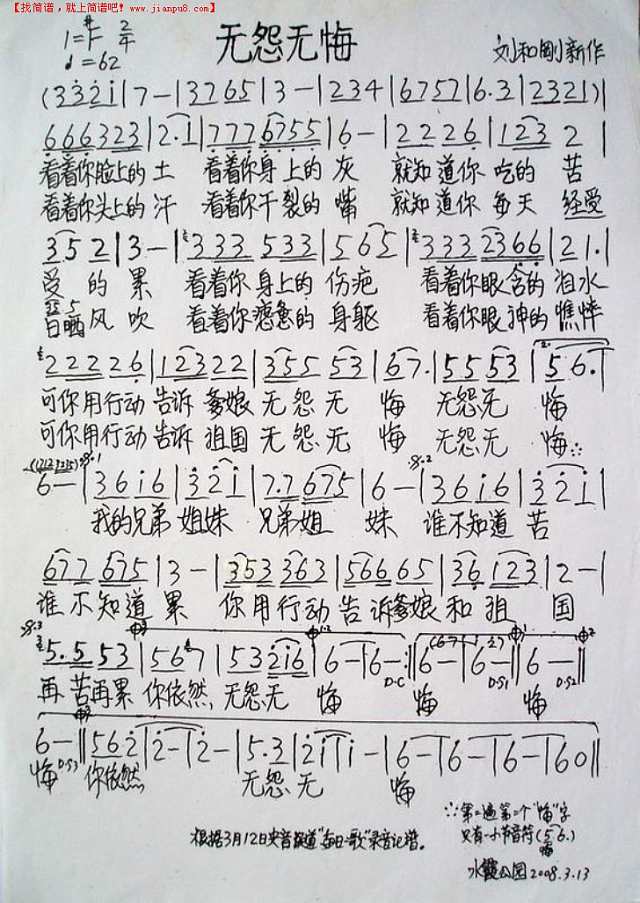 【找简谱，就上简谱吧！www.jianpu8.com】
1=#F 2/4
♩=62
无怨无悔
刘和刚新作
(3321|7-|3765|3-|234|6757|6.3|2321)|
666323|2.1|7776755|6-|2226|123 2|
看着你脸上的土 看着你身上的灰 就知道你吃的苦
看着你头上的汗 看着你干裂的嘴 就知道你每天经受
352|3-|333 533|565|333 2366|21.|
受的累 看着你身上的伤疤 看着你眼含的泪水
日晒风吹 看着你疲惫的身躯 看着你眼神的憔悴
22226|12322|355 53|67.|5553|56.|
可你用行动告诉爹娘无怨无悔 无怨无悔
可你用行动告诉祖国无怨无悔 无怨无悔
6-|3616|321|7.7675|6-|3616|321|
我的兄弟姐妹 兄弟姐妹 谁不知道苦
677 675|3-|353 363|566 65|36 123|2-|
谁不知道累 你用行动告诉爹娘和祖国
5.5 53|567|53 216|6-|6-:|6-|6-|6-|
再苦再累你依然,无怨无悔 悔 悔
6-|562|2-|2-|5.3|21|1-|6-|6-|6-|60|
悔 你依然 无怨无 悔
∴第二遍第二个"悔"字
只有一小节音符(56.)
悔
根据3月12日央音频道"每日一歌"录音记谱。
水霞公园2008.3.13